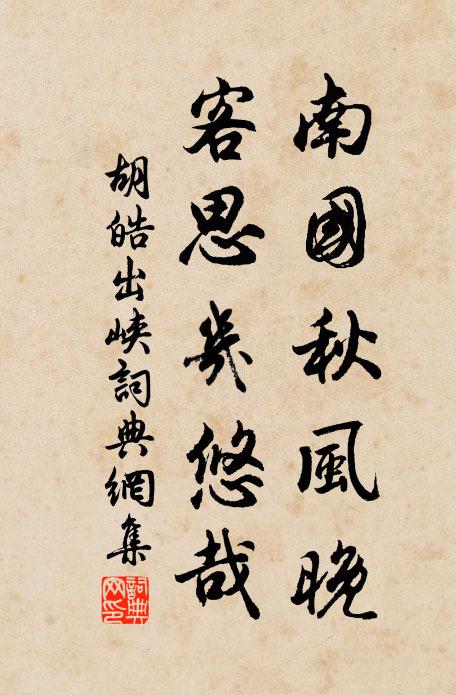 南國秋風晚
客思幾悠哉
胡皓出峽詞典網集
詞典網印